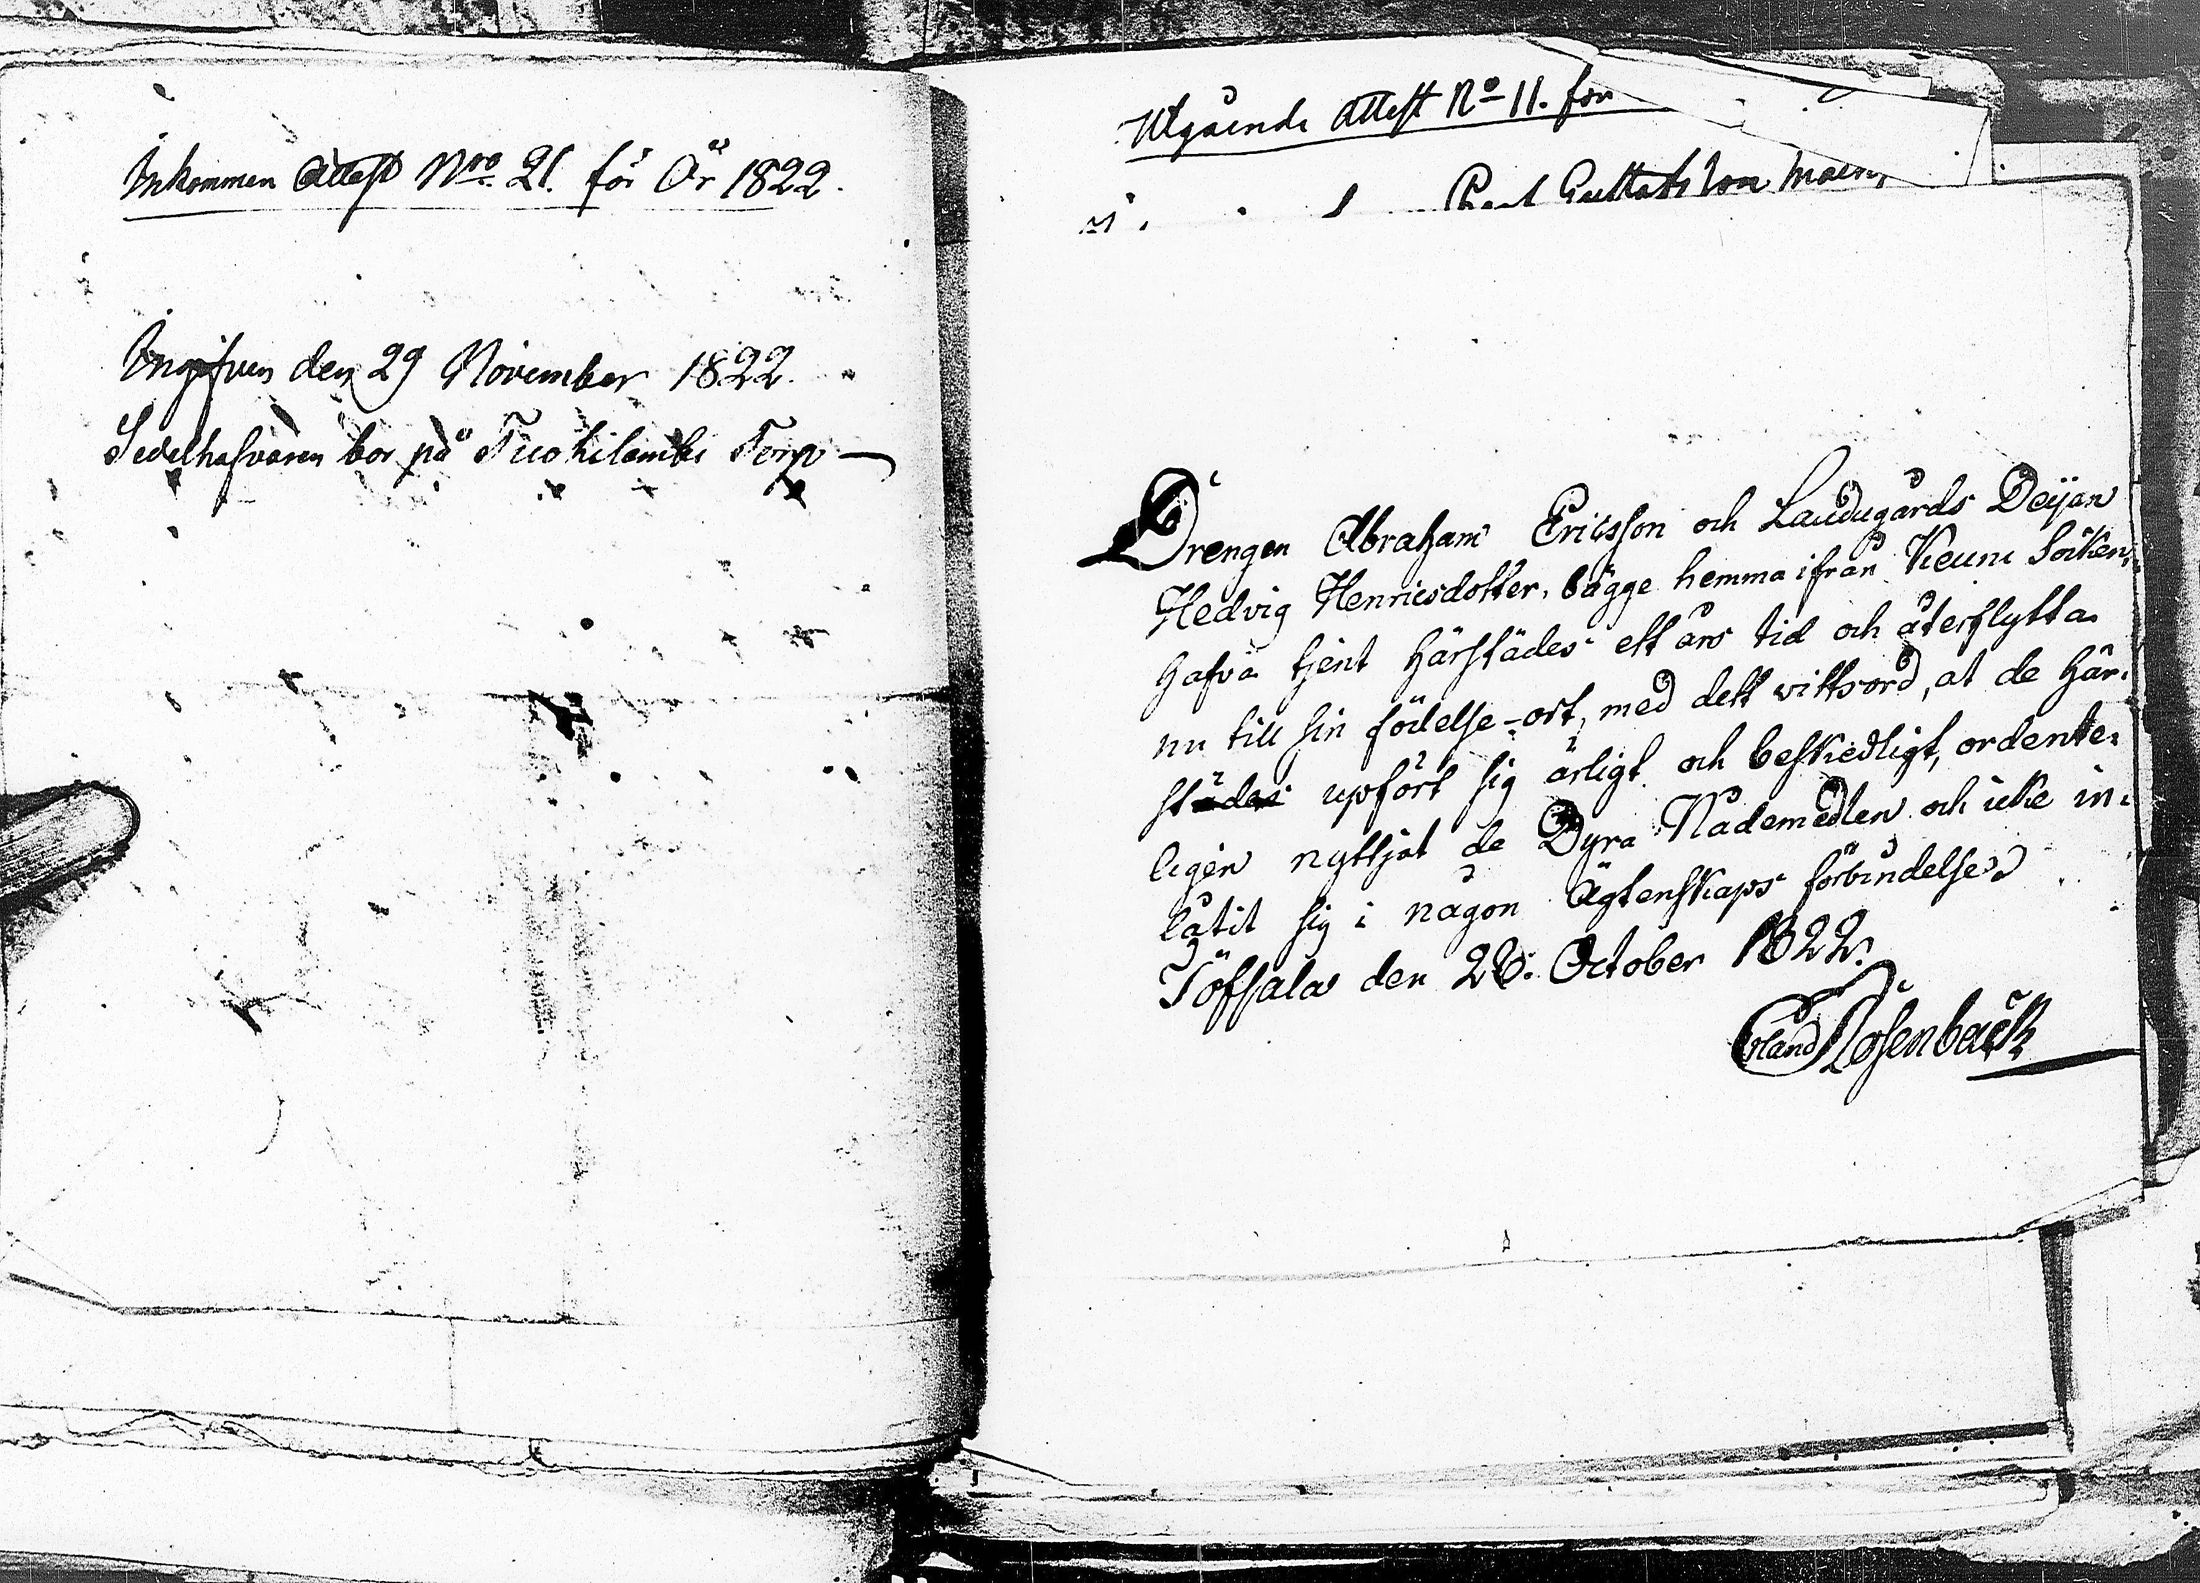 Inkommen Attest Nro 21. för År 1822.
Ingifven den 29 November 1822.
Sedelhafvaren bor på Tuohilambi Torp
Utgående Attest No 11. för
Gustafsson
Drengen Abraham Ericsson och Ladugårds Deijan
Hedvig Henricsdotter, bägge hemma ifrån Keuru Sokn,
hafva tjent härstädes ett års tid och återflytta
nu till sin födelse-ort, med dett vittsord, at de här-
städes upfört sig ärligt och beskiedligt, ordente-
ligen nyttjat de Dyra Nademedlen och icke in-
låtit sig i någon Ägtenskaps förbindelse.
Töfsala den 28. October 1822.
Erland Rosenback